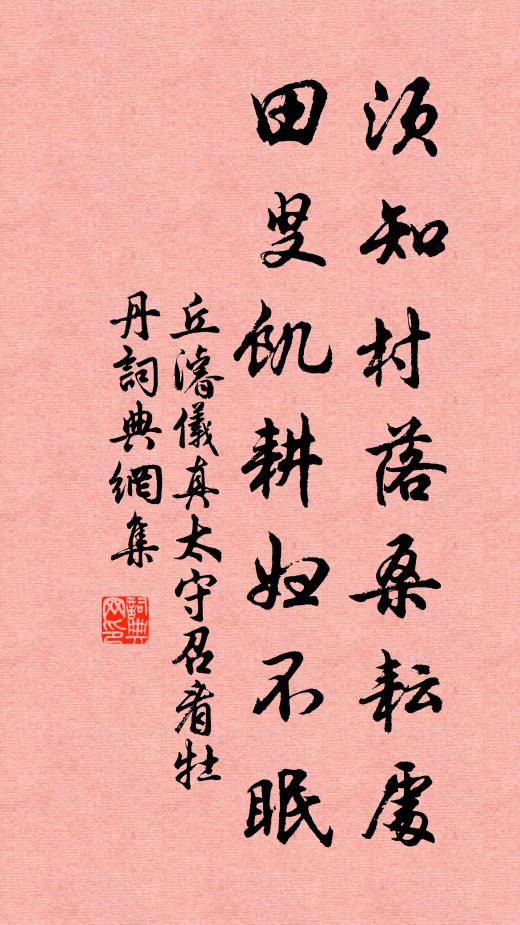 須知村落桑耘處
田叟飢耕婦不眠
丘濬儀真太守召看牡
丹詞典網集
詞典網印